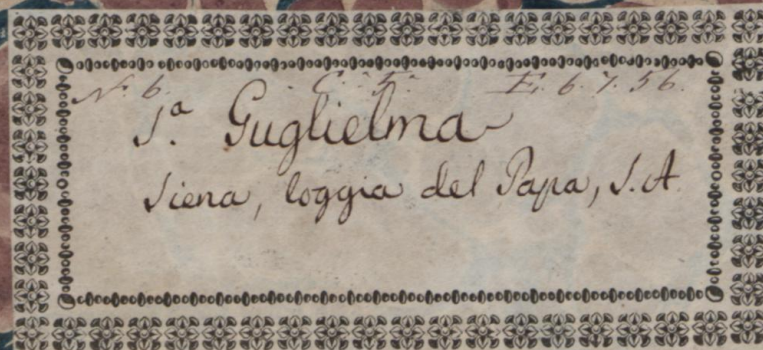 N.º 6. C. 5.ª E. 6. 7. 56.
S.ª Guglielma
Siena, loggia del Papa, S. A